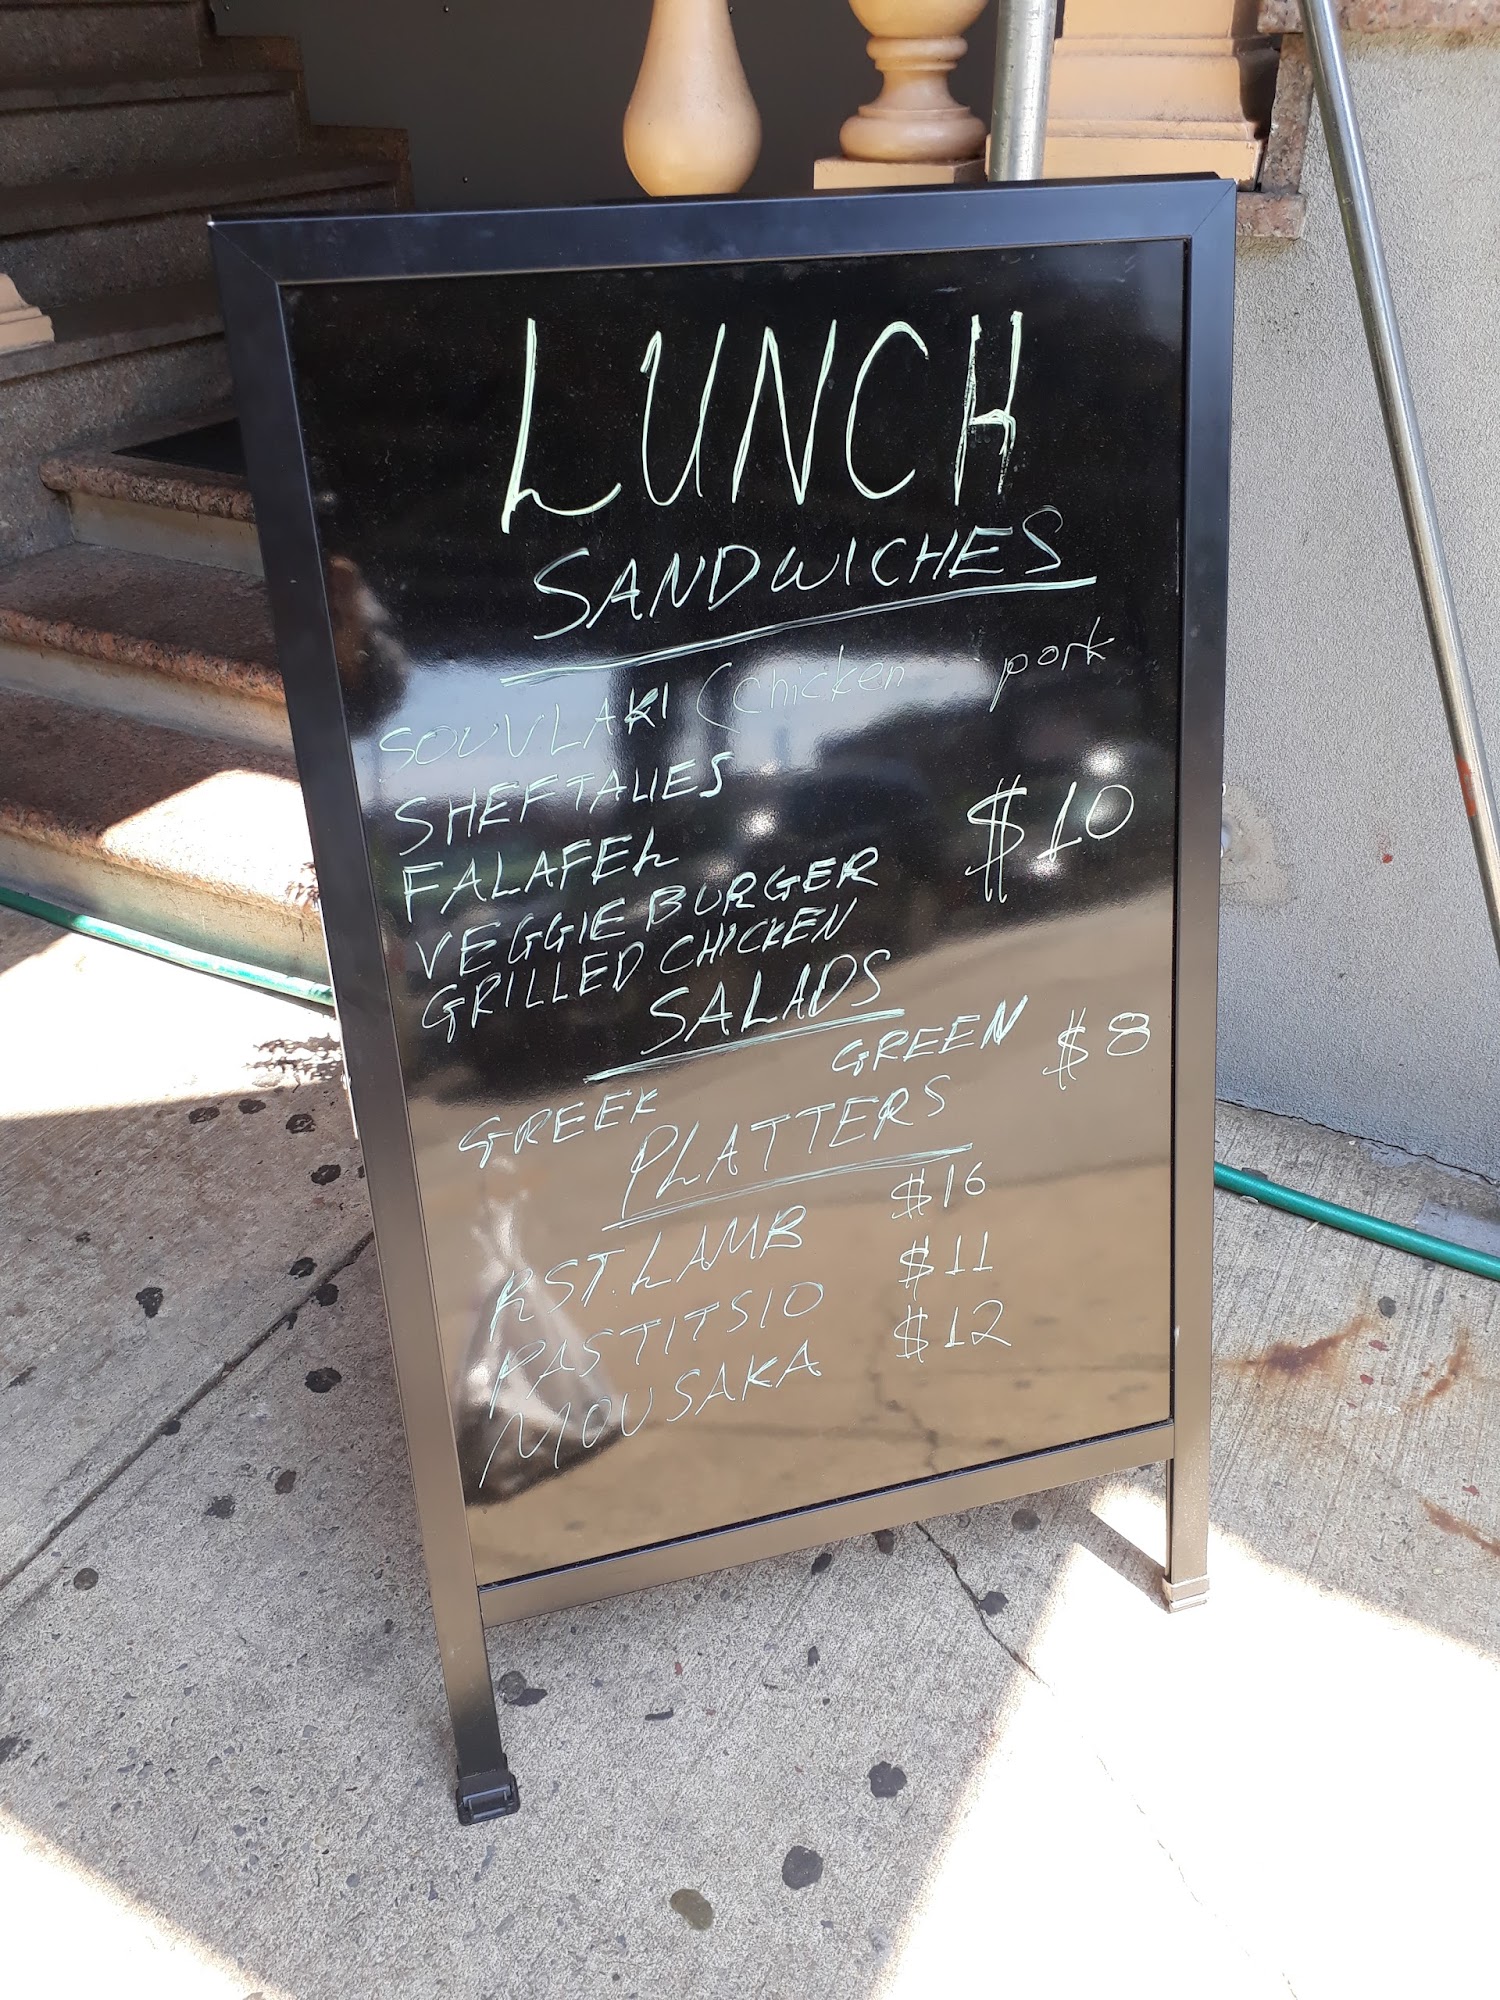 LUNCH
SANDWICHES
SOUVLAKI (chicken pork
SHEFTALIES
FALAFEL $10
VEGGIE BURGER
GRILLED CHICKEN
SALADS
GREEK GREEN $8
PLATTERS
RST. LAMB $16
PASTITSIO $11
MOUSAKA $12